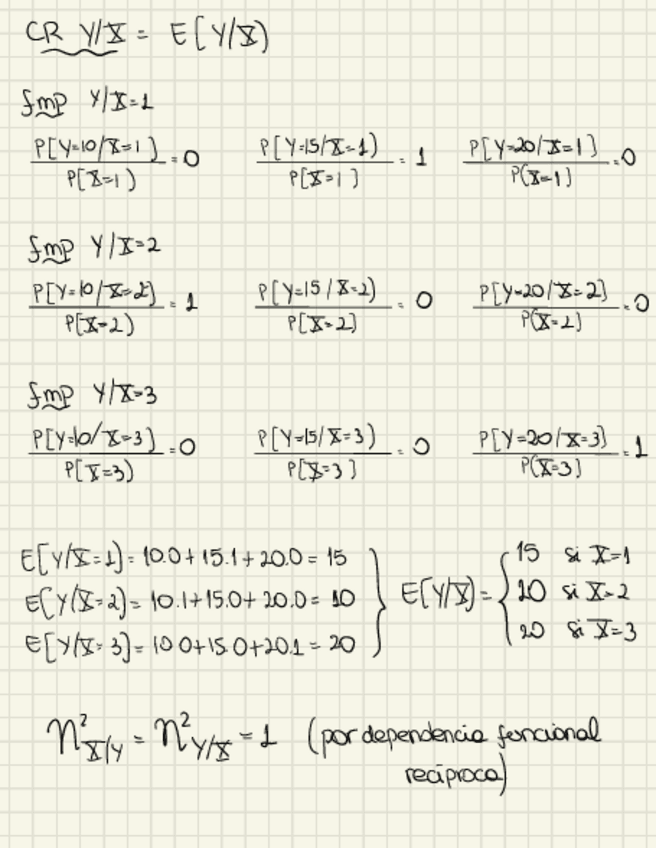 CR Y/X = E[Y/X)
fmp Y/X=1
P[Y=10/X=1] / P[X=1) = 0   P[Y=15/X=1) / P[X=1] = 1   P[Y=20/X=1] / P(X=1] = 0
fmp Y/X=2
P[Y=10/X=2] / P[X=2) = 1   P[Y=15/X=2) / P[X=2] = 0   P[Y=20/X=2] / P(X=2] = 0
fmp Y/X=3
P[Y=10/X=3) / P[X=3) = 0   P[Y=15/X=3) / P[X=3] = 0   P[Y=20/X=3] / P(X=3] = 1
E[Y/X=1] = 10.0+15.1+20.0 = 15
E[Y/X=2] = 10.1+15.0+20.0 = 10
E[Y/X=3] = 10 0+15.0+20.1 = 20
E[Y/X) = { 15 si X=1
10 si X=2
20 si X=3
η²X/Y = η²Y/X = 1 (por dependencia funcional
recíproca)